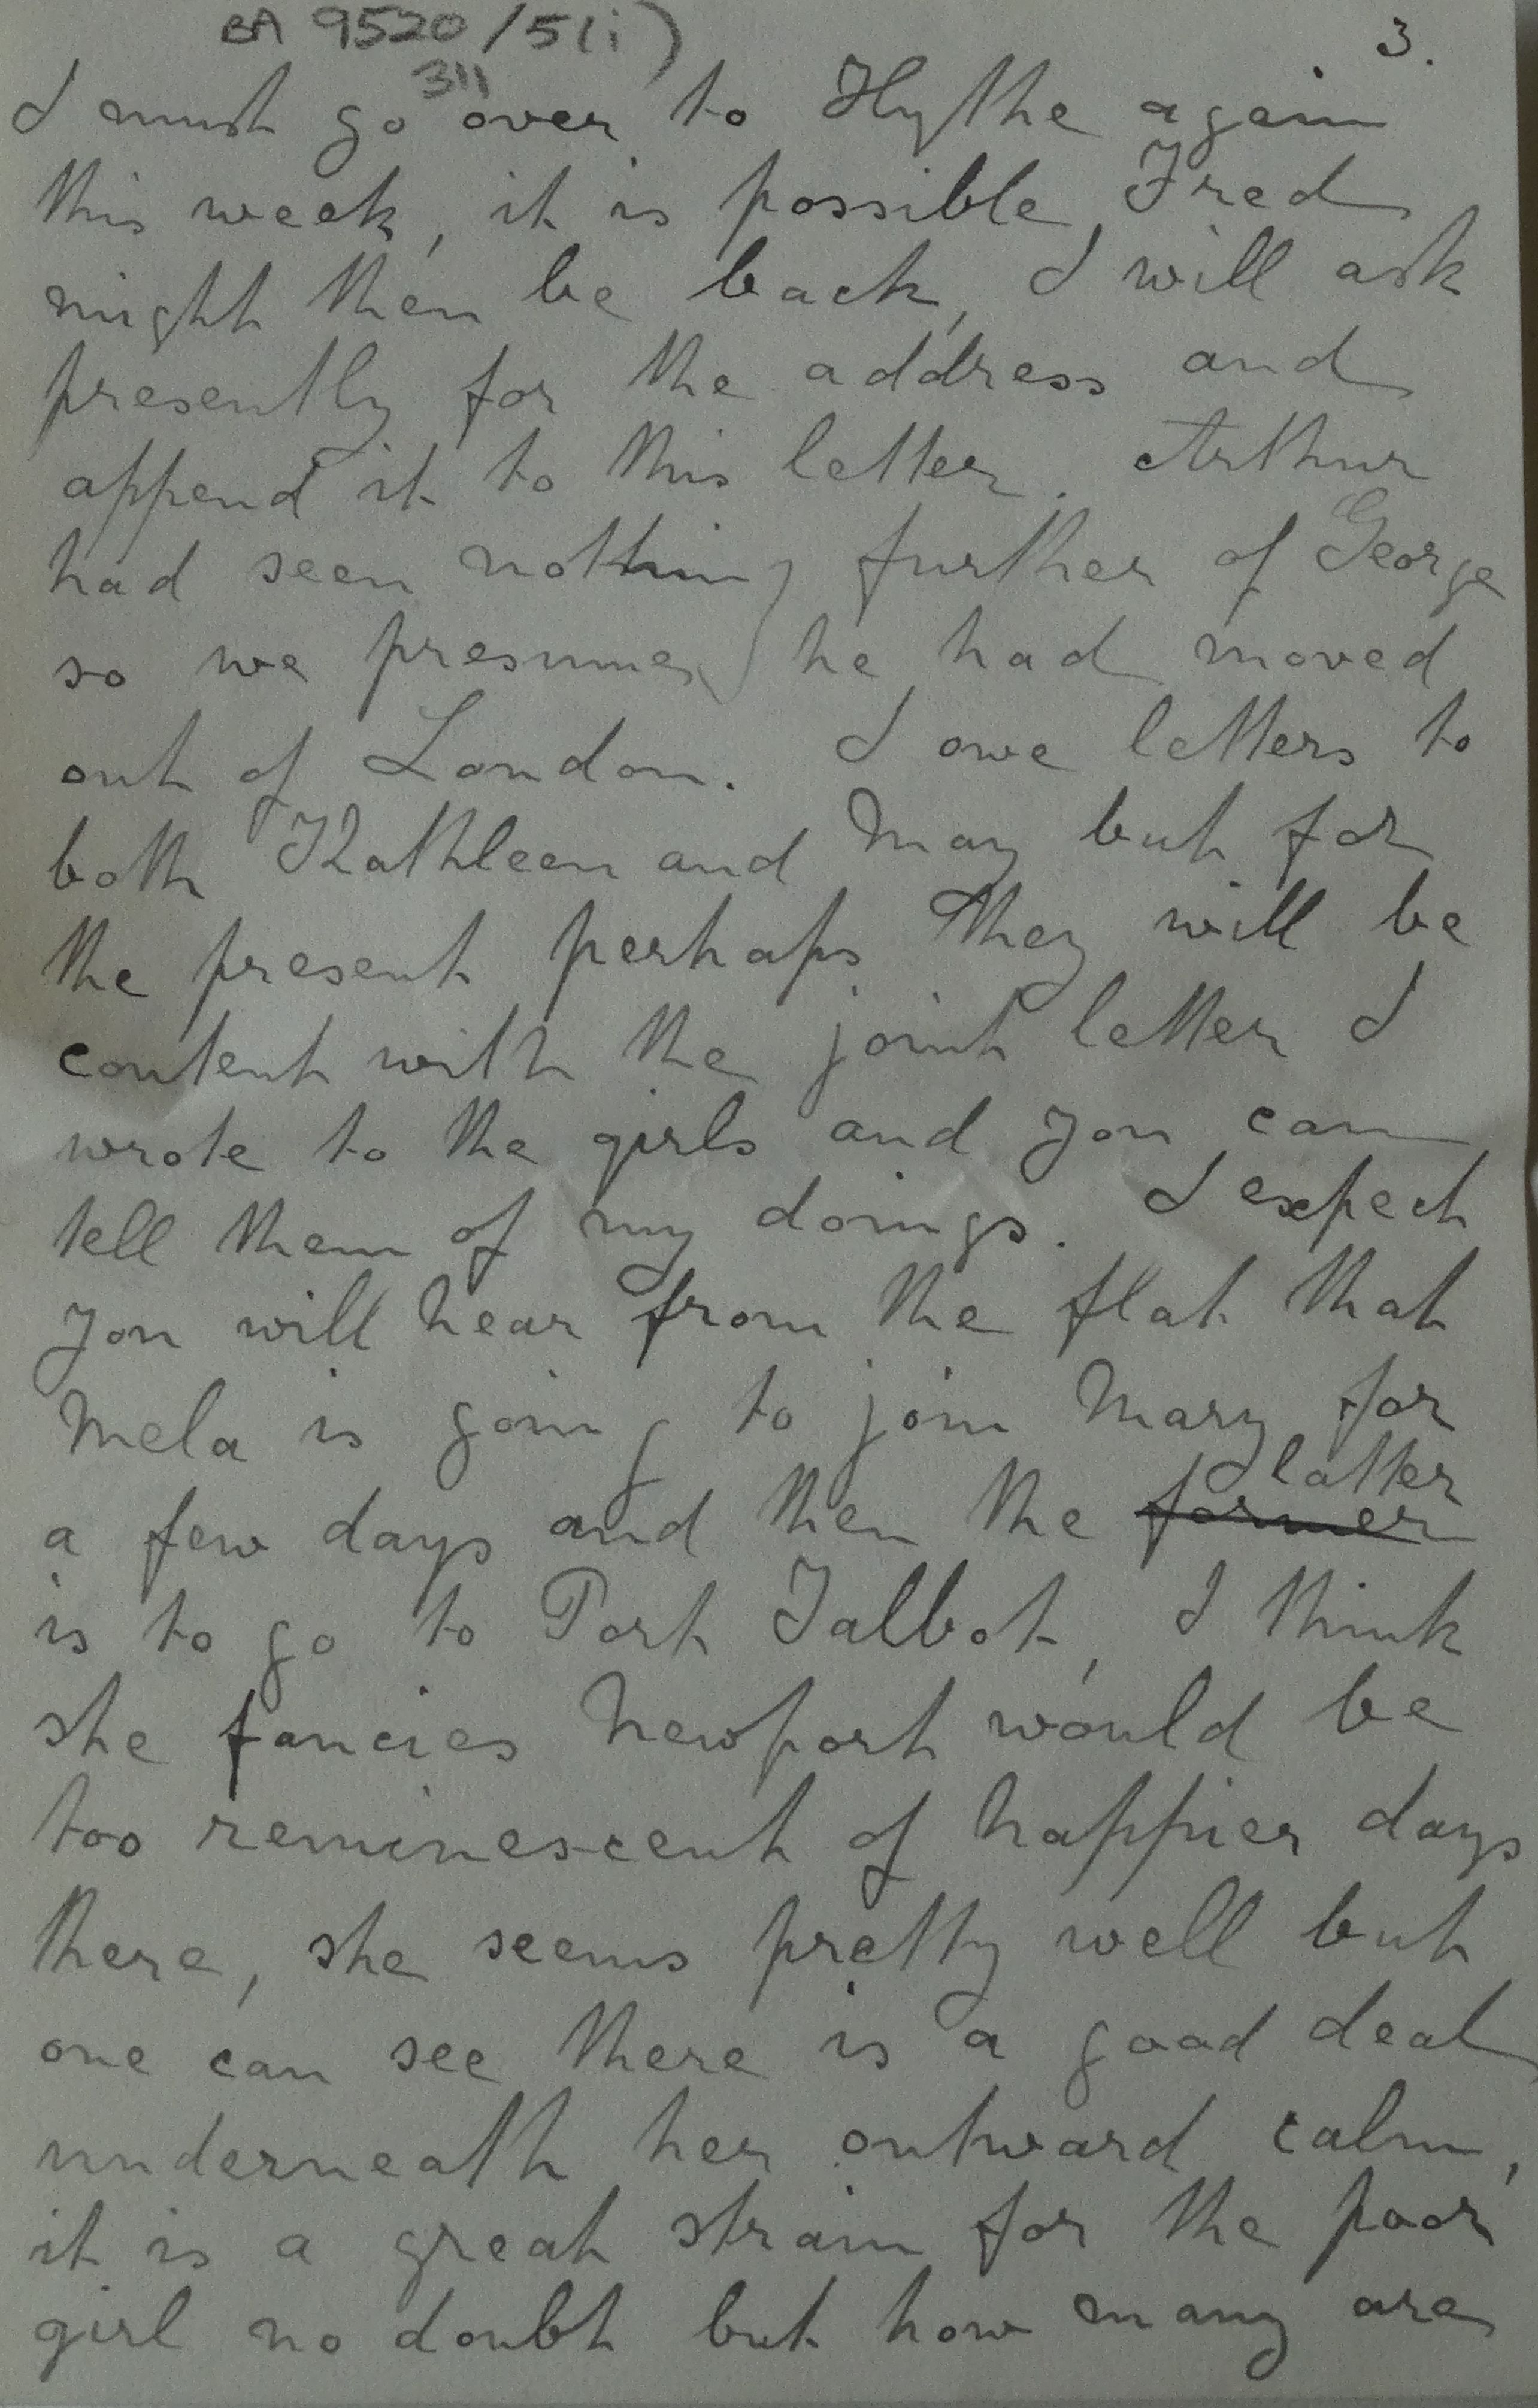 BA 9520/5(i)
311
3.
I must go over to Hythe again
this week, it is possible Fred
might then be back, I will ask
presently for the address and
append it to this letter. Arthur
had seen nothing further of George
so we presumed he had moved
out of London. I owe letters to
both Kathleen and May but for
the present perhaps they will be
content with the joint letter I
wrote to the girls and you can
tell them of my doings. I expect
you will hear from the flat that
Mela is going to join Mary for
latter
a few days and then the former
is to go to Port Talbot, I think
she fancies Newport would be
too reminescent of happier days
there, she seems pretty well but
one can see there is a good deal
underneath her outward calm,
it is a great strain for the poor
girl no doubt but how many are